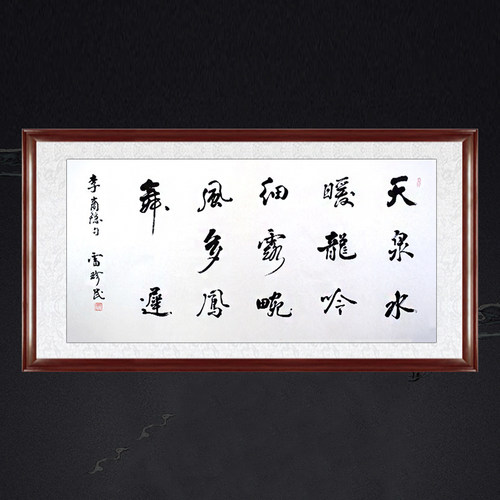 天泉水
暖龍吟
細露畹
風多鳳
舞遲
李商隱句 雷珍民